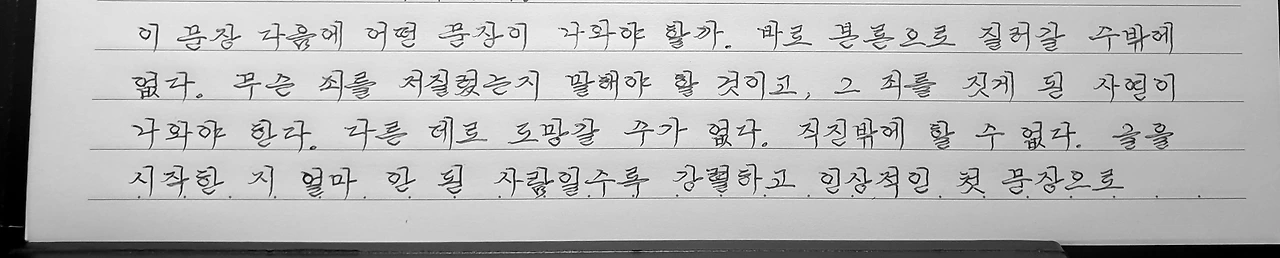 이 문장 다음에 어떤 문장이 나와야 할까. 바로 본론으로 질러갈 수밖에
없다. 무슨 죄를 저질렀는지 말해야 할 것이고, 그 죄를 짓게 된 사연이
나와야 한다. 다른 데로 도망갈 수가 없다. 직진밖에 할 수 없다. 글을
시작한 지 얼마 안 된 사람일수록 강렬하고 인상적인 첫 문장으로